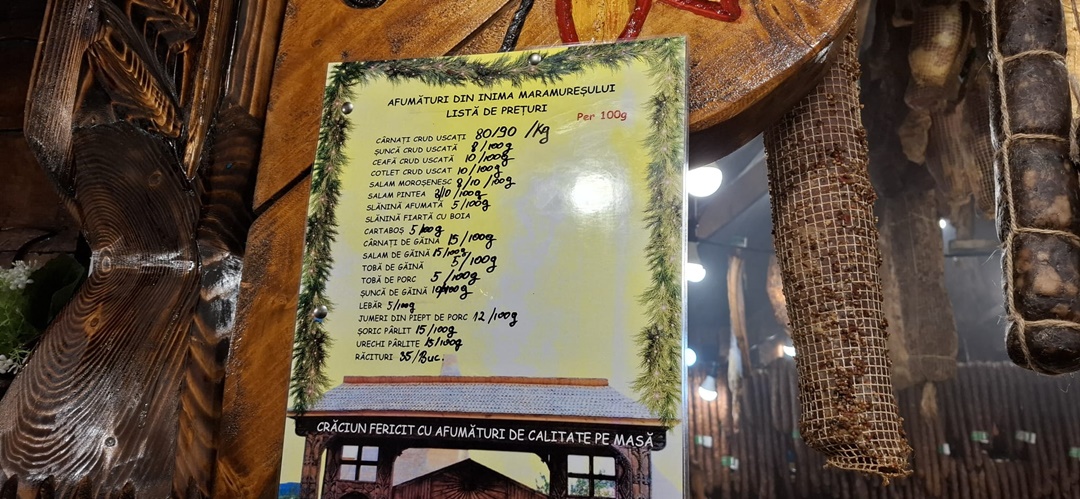 AFUMĂTURI DIN INIMA MARAMUREȘULUI
LISTĂ DE PREȚURI
Per 100g
CÂRNAȚI CRUD USCAȚI 80/90 /Kg
ȘUNCĂ CRUD USCATĂ 8/100g
CEAFĂ CRUD USCATĂ 10/100g
COTLET CRUD USCAT 10/100g
SALAM MOROȘENESC 8/10 /100g
SALAM PINTEA /10 /100g
SLĂNINĂ AFUMATĂ 5/100g
SLĂNINĂ FIARTĂ CU BOIA
CARTABOȘ 5/100g
CÂRNAȚI DE GĂINĂ 15/100g
SALAM DE GĂINĂ 15/100g
TOBĂ DE GĂINĂ 5/100g
TOBĂ DE PORC 5/100g
ȘUNCĂ DE GĂINĂ 10/100g
LEBĂR 5/100g
JUMERI DIN PIEPT DE PORC 12/100g
ȘORIC PÂRLIT 15/100g
URECHI PÂRLITE 15/100g
RĂCITURI 35/Buc.
CRĂCIUN FERICIT CU AFUMĂTURI DE CALITATE PE MASĂ